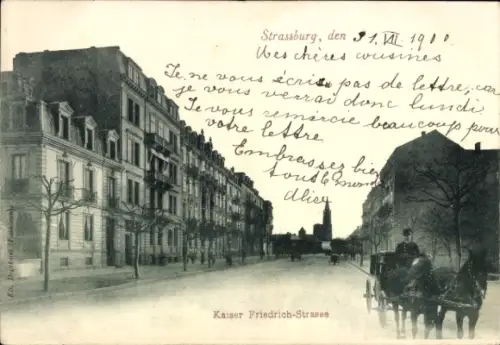 Strassburg, den 31. VII. 1900
Mes chères cousines
Je ne vous écris pas de lettre, car
je vous verrai donc lundi
Je vous remercie beaucoup pour
votre lettre
Embrassez bien
tout le monde
Alice
Kaiser Friedrich-Strasse